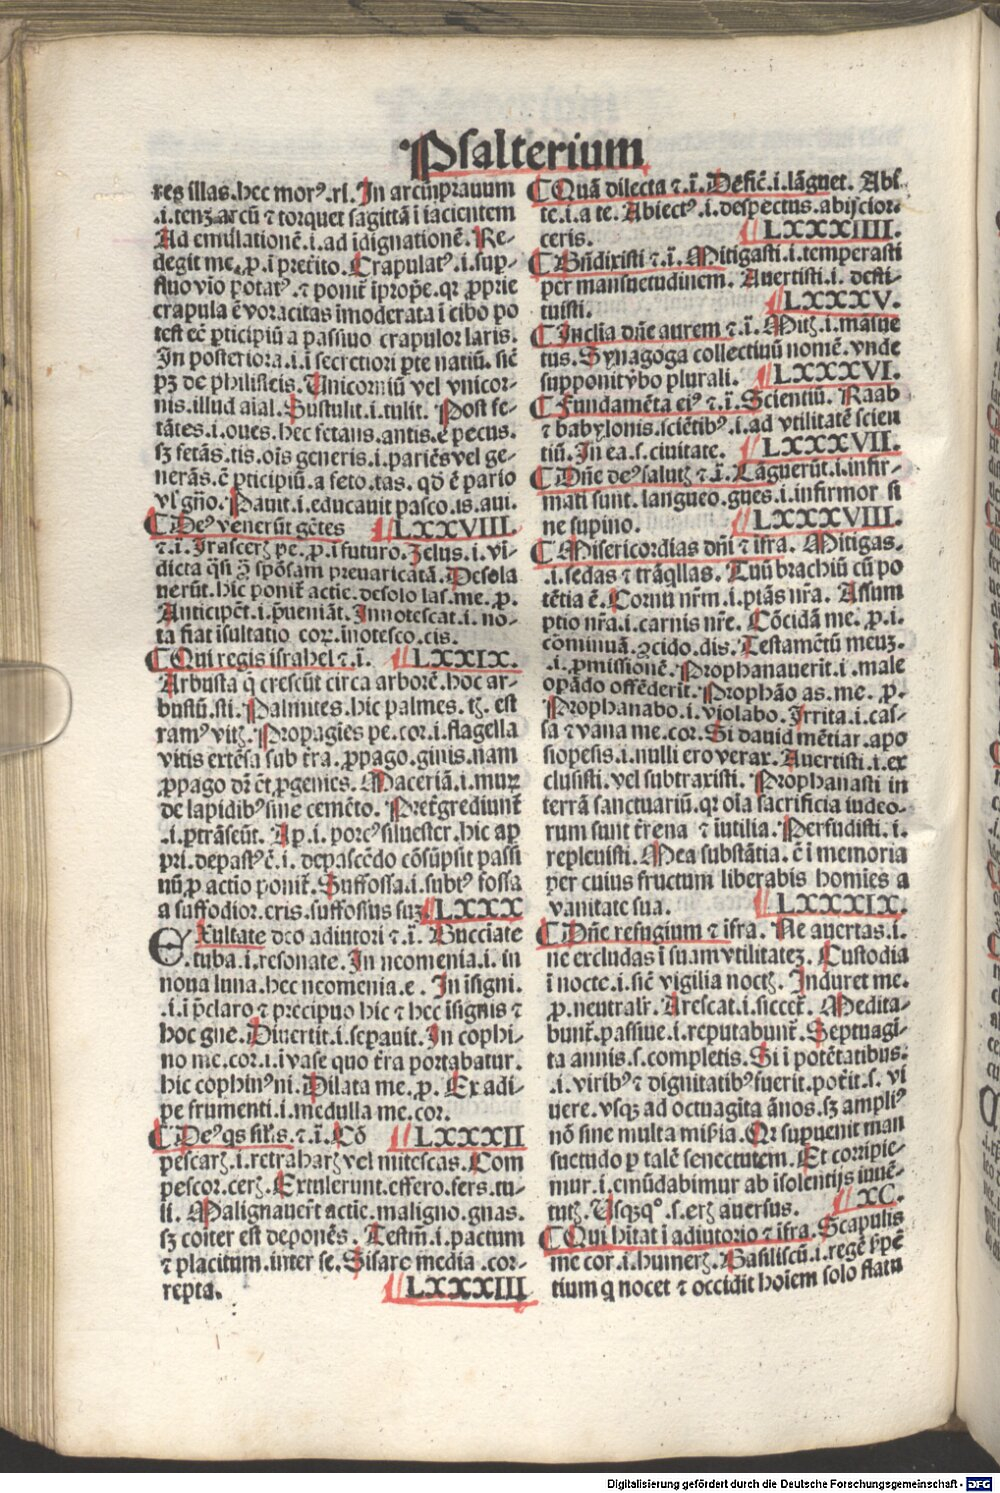 Psalterium
res illas.hec morꝰ.ri. In arcūprauum
.i.tenꝫ arcū ⁊ torquet sagittā i iacientem
Ad emulationē.i.ad īdignationē. Re-
degit me.ꝓ.i preťito. Crapulatꝰ.i.sup-
fluo vīo potatꝰ.⁊ poniť īprop̄e.qr ꝓprie
crapula ē voracitas īmoderata ī cibo po
test ec̄ ꝑticipiū a passiuo crapulor laris.
In posteriora.i.ī secretiori ꝑte natiū. sic̄
pꝫ de philisteis. Unicorniū vel vnicor-
nis.illud aīal. Sustulit.i.tulit. Post fe-
tātes.i.oues.hec fetans.antis.ē pecus.
sꝫ fetās.tis.oīs generis.i.pariēs vel ge-
nerās.ē ꝑticipiū.a feto.tas. qd̄ ē pario
vl̓ gn̄o. Pauit.i.educauit pasco.is.aui.
Deꝰ venerūt gētes LXXVIII.
⁊.ī. Irascerꝭ pe.ꝓ.i futuro. Zelus.i.vi-
dicta q̄si ꝗ spōsam preuaricatā. Desola
nerūt.hic poniť actie.desolo las.me.ꝓ.
Anticipēt.i.p̄ueniāt. Innotescat.i.no-
ta fiat īsultatio coꝝ.inotesco.cis.
Qui regis israhel ⁊.ī. LXXIX.
Arbusta q̄ crescūt circa arborē.hoc ar-
bustū.sti. Palmites.hic palmes.tꝭ. est
ramꝰ vitꝭ. Propagies pe.cor.i.flagella
vitis extēsa sub ťra.ꝓpago.ginis.nam
ꝓpago dr̄ ēt ꝓgenies. Maceriā.i.muꝝ
de lapidibꝰ sine cemēto. Preťgrediunť
.i.ꝑtrāseūt. Ap.i.porcꝰ siluester.hic ap
pri.depastꝰ ē.i.depascēdo cōsūpsit passi
nū.ꝓ actio poniť. Suffossa.i.subtꝰ fossa
a suffodior.eris.suffossus suꝫ. LXXX
Exultate deo adiutori ⁊.ī. Bucciate
.tuba.i.resonate. In neomenia.i. in
noua luna.hec neomenia.e. In īsigni.
.i.ī p̄claro ⁊ precipuo hic ⁊ hec īsignis ⁊
hoc gne. Diuertit.i.sepauit. In cophi-
no me.cor.i.ī vase quo ťra portabatur.
hic cophinꝰ ni. Dilata me.ꝓ. Ex adi-
pe frumenti.i.medulla me.cor.
Deꝰ qs sil̓is.⁊.ī. Cō LXXXII
pescarꝭ.i.retraharꝭ vel mitescas. Com
pescor.cerꝭ. Extulerunt.effero.fers.tu-
li. Malignauerťt actie.maligno.gnas.
sꝫ cōiter est deponēs. Testm̄.i.pactum
⁊ placitum.inter se. Sisare media .cor-
repta. LXXXIII
Quā dilecta ⁊.ī. Defic̄.i.lāguet. Abi-
te.i.a te. Abiectꝰ.i.despectus.abijcior.
ceris. LXXXIIII.
Bn̄dixisti ⁊.ī. Mitigasti.i.temperasti
per mansuetudinem. Auertisti.i. desti-
tuisti. LXXXV.
Inclia dn̄e aurem ⁊.ī. Mitꝭ.i.māsue
tus. Synagoga collectiuū nomē.vnde
supponit v̓bo plurali. LXXXVI.
Fundamēta eiꝰ ⁊.ī. Scientiū. Raab
⁊ babylonis.sciētibꝰ.i.ad vtilitatē scien
tiū. In ea.s.ciuitate. LXXXVII.
Dn̄e deꝰ salutꝭ ⁊ ī. Lāguerūt.i.infir-
mati sunt. langueo.gues.i.infirmor si
ne supino. LXXXVIII.
Misericordias dn̄i ⁊ ifra. Mitigas.
.i.sedas ⁊ trāqllas. Tuū brachiū cū po
tētia ē. Cornu nr̄m.i.ptās nr̄a. Assum
ptio nr̄a.i.carnis nr̄e. Cōcidā me.ꝓ.i.
cōminuā.ꝯcido.dis. Testamētū meuꝫ.
.i.ꝓmissionē. Prophanauerit.i.male
opādo offēderit. Prophāo as.me. ꝓ.
Prophanabo.i.violabo. Irrita.i.cas-
sa ⁊ vana me.cor. Si dauid mētiar.apo
siopesis.i.nulli ero verax. Auertisti.i.ex
clusisti.vel subtraxisti. Prophanasti in
terrā sanctuariū.qr oīa sacrificia iudeo-
rum sunt ťrena ⁊ īutilia. Perfudisti.i.
repleuisti. Mea substātia.ē ī memoria
per cuius fructum liberabis homīes a
vanitate sua. LXXXIX.
Dn̄e refugium ⁊ ifra. Ne auertas.i.
ne excludas ī suam vtilitateꝫ. Custodia
ī nocte.i.sic̄ vigilia noctꝭ. Induret me.
ꝓ.neutralr̄. Arescat.i.siccet̄. Medita-
bunť.passiue.i.reputabunť. Septuagi-
ta annis.s.completis. Si ī potētatibus.
.i.viribꝰ ⁊ dignitatibꝰ fuerit.poťit.s. vi
uere.vsqꝫ ad octuagīta ānos.sꝫ ampliꝰ
nō sine multa misīa. Qr supuenit man
suetudo ꝑ talē senectutem. Et corripie-
mur.i.emūdabimur ab īsolentijs iuuē-
tutꝭ. Usqꝫqͦ.s.erꝭ auersus. XC.
Qui hītat ī adiutorio ⁊ īfra. Scapulis
me cor.i.humerꝭ. Basiliscū.i.regē ser̄pē
tium q nocet ⁊ occidit hoīem solo flatu
Digitalisierung gefördert durch die Deutsche Forschungsgemeinschaft - DFG